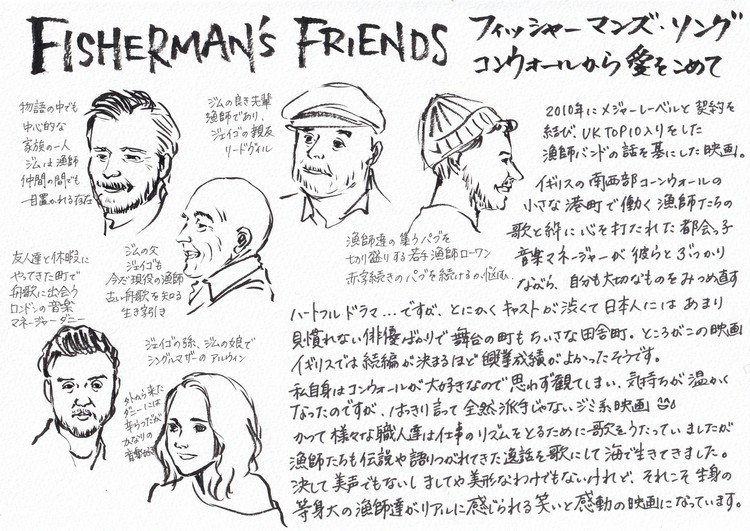 FISHERMAN'S FRIENDS
フィッシャーマンズ・ソング
コンウォールから愛をこめて
物語の中でも
中心的な
家族の一人
ジムは漁師
仲間の間でも
一目置かれる存在
ジムの良き先輩
漁師であり、
ジェイゴの親友
リードヴォイル
2010年にメジャーレーベルと契約を
結び、UK TOP10入りをした
漁師バンドの話を基にした映画。
イギリスの南西部コーンウォールの
小さな港町で働く漁師たちの
歌と絆に心を打たれた都会っ子
音楽マネージャーが彼らとぶつかり
ながら、自分も大切なものをみつめ直す
漁師達の集うパブを
切り盛りする若き漁師ローワン
赤字続きのパブを続けるか悩む。
ジムの父
ジェイゴも
今だ現役の漁師
古い舟歌を知る
生き字引き
友人達と休暇に
やってきた町で
舟歌に出会う
ロンドンの音楽
マネージャーダニー
ジェイゴの孫、ジムの娘で
シングルマザーのアルウィン
外から来た
ダニーには
辛らつだが
かなりの
音楽
ハートフルドラマ…ですが、とにかくキャストが渋くて日本人にはあまり
見慣れない俳優ばかりで舞台の町もちいさな田舎町。ところがこの映画
イギリスでは続編が決まるほど興業成績がよかったそうです。
私自身はコンウォールが大好きなので思わず観てしまい、気持ちが温かく
なったのですが、はっきり言って全然派手じゃないジミ系映画
かつて様々な職人達は仕事のリズムをとるために歌をうたっていましたが
漁師たちも伝説や語りつがれてきた逸話を歌にして海で生きてきました。
決して美声でもないしましてや美形なわけでもないけれど、それこそ生身の
等身大の漁師達がリアルに感じられる笑いと感動の映画になっています。